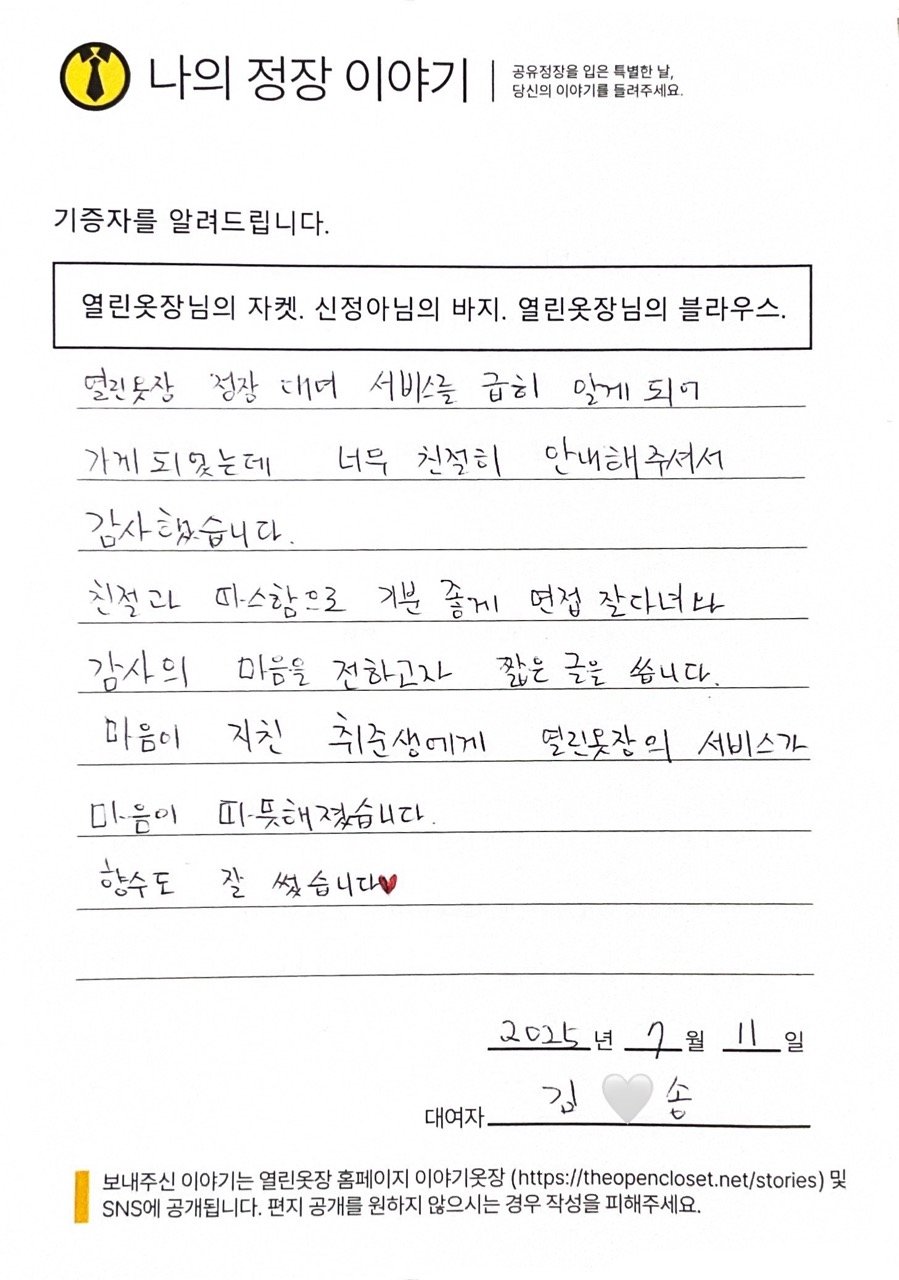 나의 정장 이야기
공유정장을 입은 특별한 날,
당신의 이야기를 들려주세요.
기증자를 알려드립니다.
열린옷장님의 자켓. 신정아님의 바지. 열린옷장님의 블라우스.
열린옷장 정장 대여 서비스를 급히 알게 되어
가게 되었는데 너무 친절히 안내해주셔서
감사했습니다.
친절과 따스함으로 기분 좋게 면접 잘다녀와
감사의 마음을 전하고자 짧은 글을 씁니다.
마음이 지친 취준생에게 열린옷장의 서비스가
마음이 따뜻해졌습니다.
향수도 잘 썼습니다♥
2025년 7월 11일
대여자 김 🤍 송
보내주신 이야기는 열린옷장 홈페이지 이야기옷장 (https://theopencloset.net/stories) 및
SNS에 공개됩니다. 편지 공개를 원하지 않으시는 경우 작성을 피해주세요.